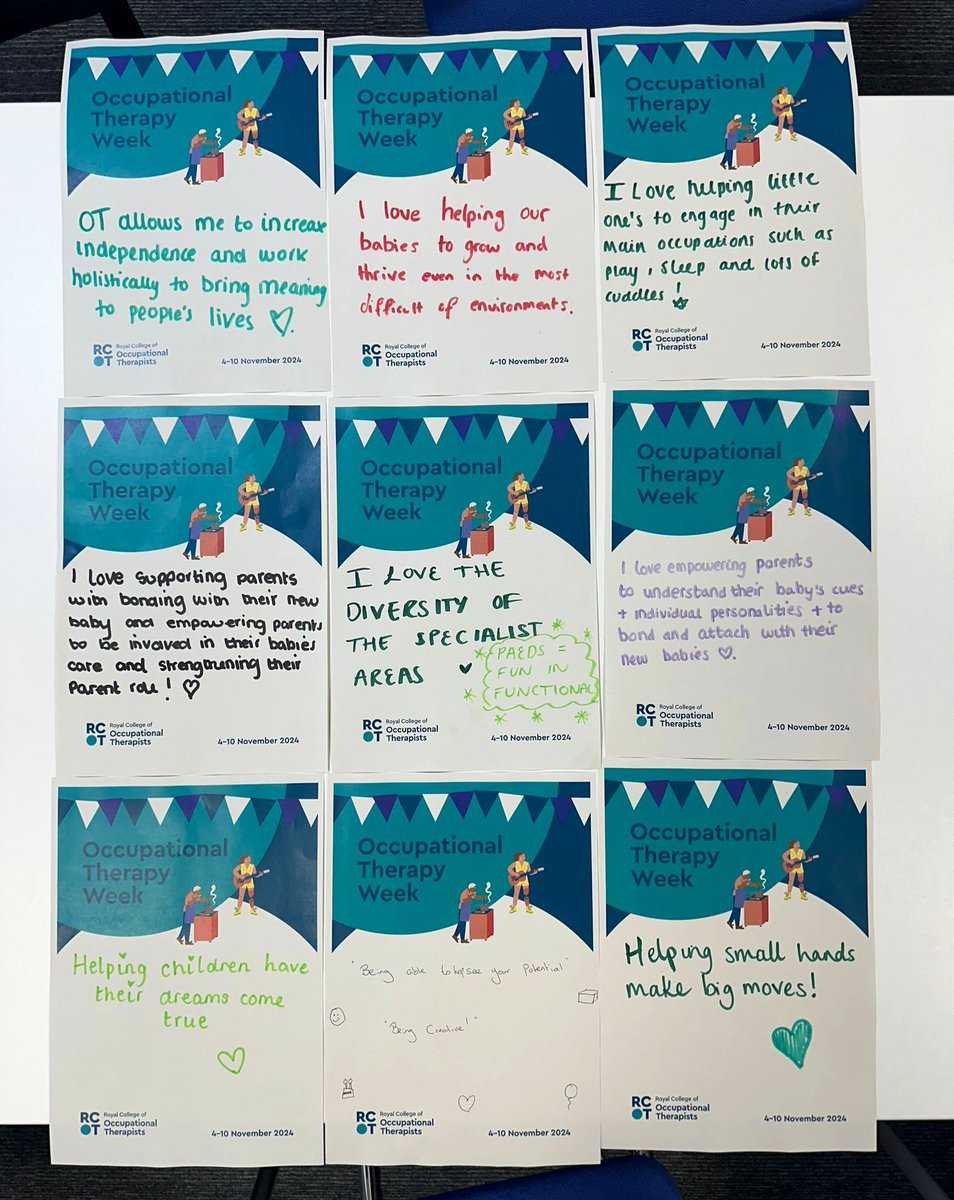 Occupational
Therapy
Week
OT allows me to increase
independence and work
holistically to bring meaning
to people's lives
RC
OT
Royal College of
Occupational
Therapists
4–10 November 2024
Occupational
Therapy
Week
I love helping our
babies to grow and
thrive even in the most
difficult of environments.
RC
OT
Royal College of
Occupational
Therapists
4–10 November 2024
Occupational
Therapy
Week
I Love helping little
one's to engage in their
main occupations such as
play, sleep and lots of
cuddles!
RC
OT
Royal College of
Occupational
Therapists
4–10 November 2024
Occupational
Therapy
Week
I love supporting parents
with bonding with their new
baby and empowering parents
to be involved in their babies
care and strengthning their
parent role!
RC
OT
Royal College of
Occupational
Therapists
4–10 November 2024
Occupational
Therapy
Week
I LOVE THE
DIVERSITY OF
THE SPECIALIST
AREAS
PAEDS =
FUN IN
FUNCTIONAL
RC
OT
Royal College of
Occupational
Therapists
4–10 November 2024
Occupational
Therapy
Week
I love empowering parents
to understand their baby's cues
+ individual personalities + to
bond and attach with their
new babies
RC
OT
Royal College of
Occupational
Therapists
4–10 November 2024
Occupational
Therapy
Week
Helping children have
their dreams come
true
RC
OT
Royal College of
Occupational
Therapists
4–10 November 2024
Occupational
Therapy
Week
"Being able to help see your potential"
"Being Creative!"
RC
OT
Royal College of
Occupational
Therapists
4–10 November 2024
Occupational
Therapy
Week
Helping small hands
make big moves!
RC
OT
Royal College of
Occupational
Therapists
4–10 November 2024